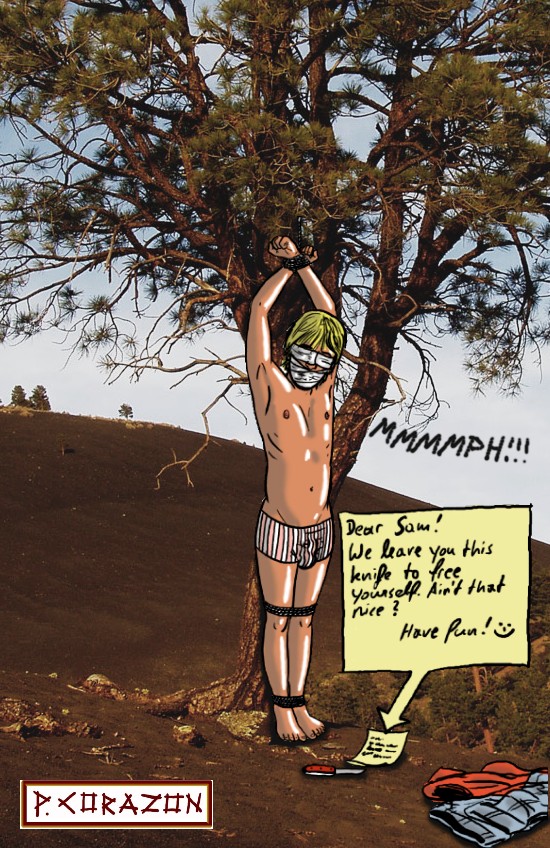 MMMMPH!!!
Dear Sam!
We leave you this
knife to free
yourself. Ain't that
nice?
Have fun!
P. CORAZON